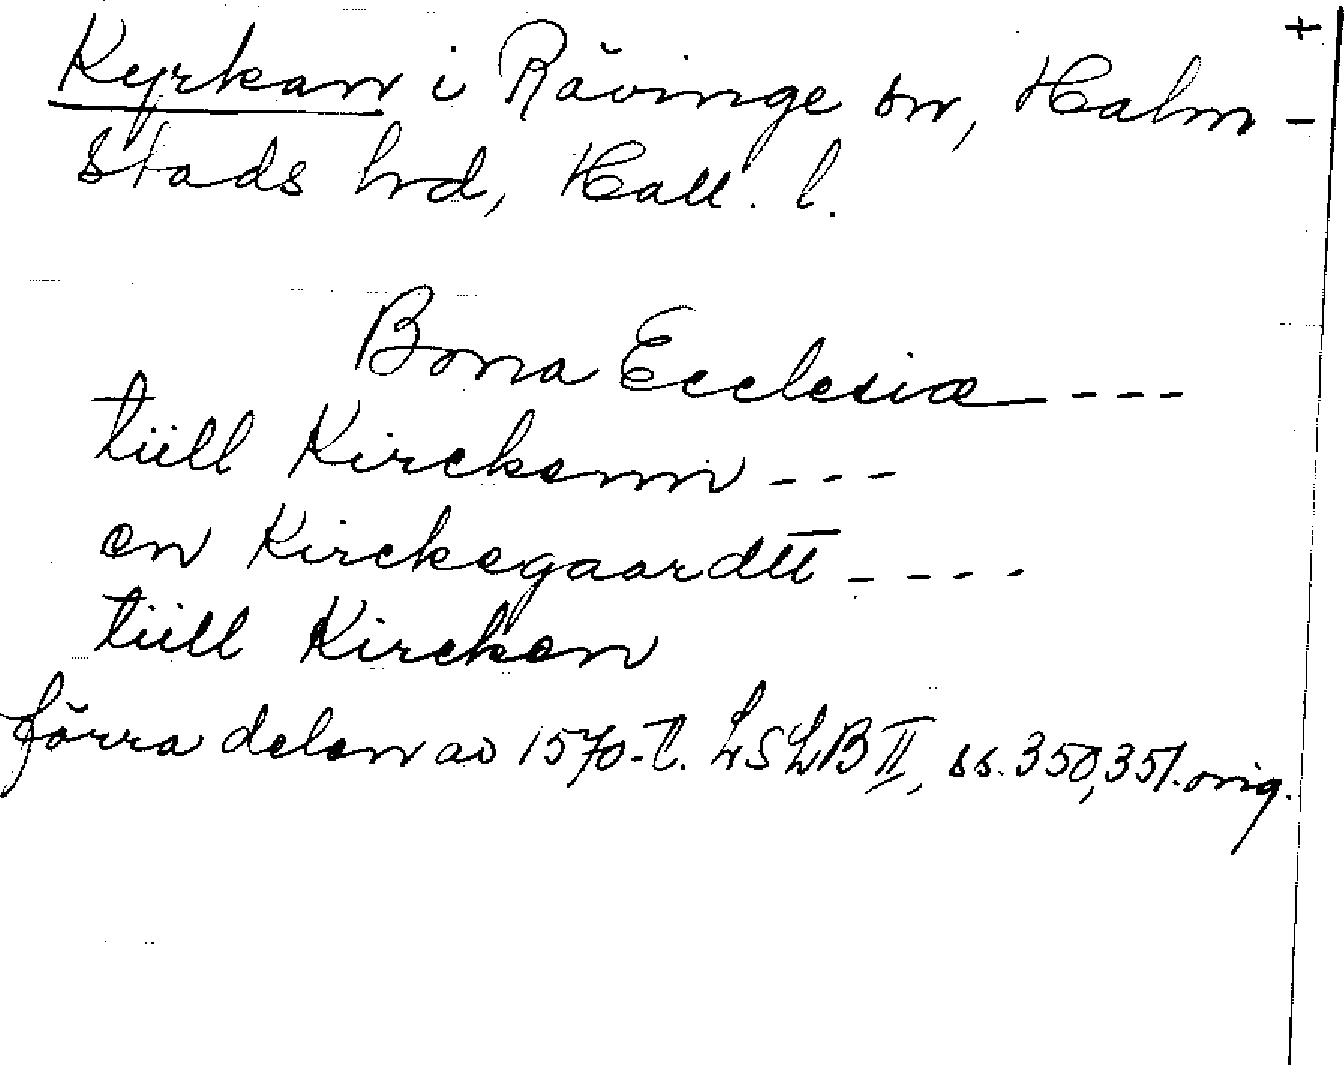 +
Kyrkan i Rävinge sn, Halm-
stads hrd, Hall. l.
Bona Ecclesiæ----
tiill Kirckenn---
en Kirckegaardtt----
tiill Kircken
förra delen av 1570-t. LSLB II, ss. 350, 351. orig.